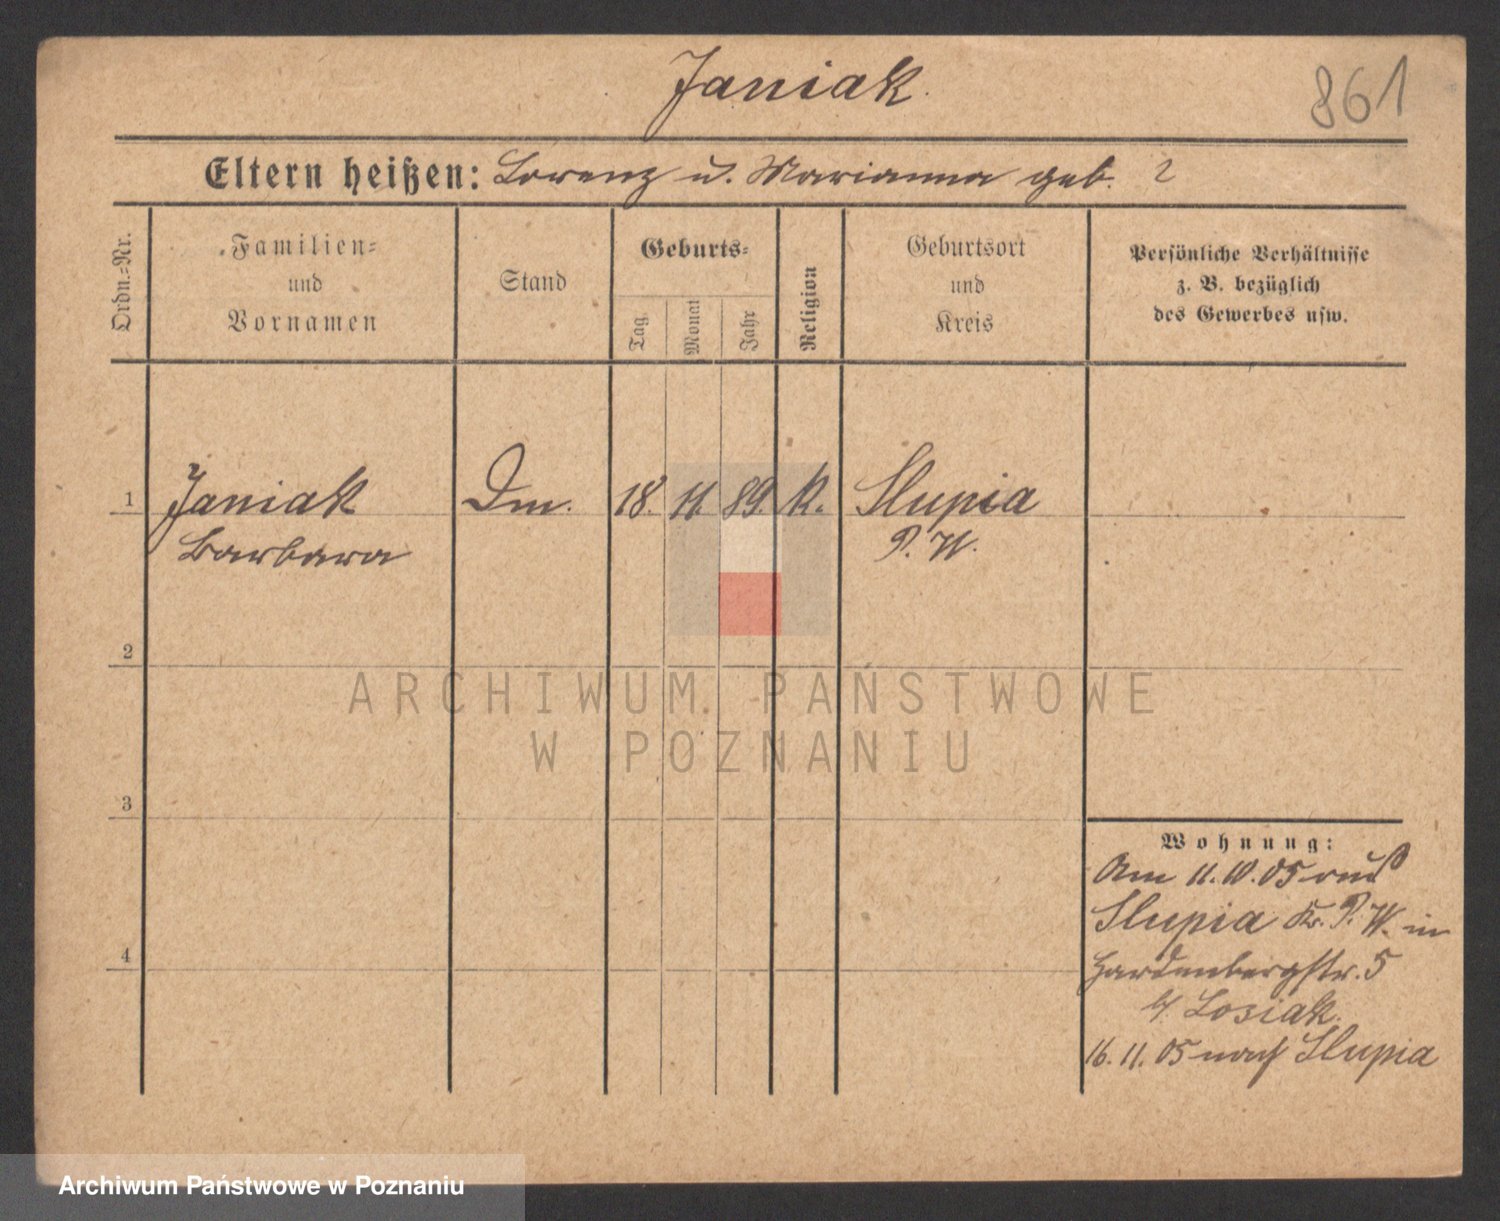 Janiak.
861
Eltern heißen: Lorenz u. Marianna geb. ?
Ordn.=Nr.
Familien=
und
Vornamen
Stand
Geburts=
Tag
Monat
Jahr
Religion
Geburtsort
und
Kreis
Persönliche Verhältnisse
z. B. bezüglich
des Gewerbes usw.
1 Janiak Dm. 18. 11. 89. K. Slupia
Barbara P. W.
2
ARCHIWUM PAŃSTWOWE
W POZNANIU
3
Wohnung:
Am 11.10.05 aus
Slupia Kr. P. W. in
4
Hardenbergstr. 5
b/ Losiak.
16. 11. 05 nach Slupia
Archiwum Państwowe w Poznaniu